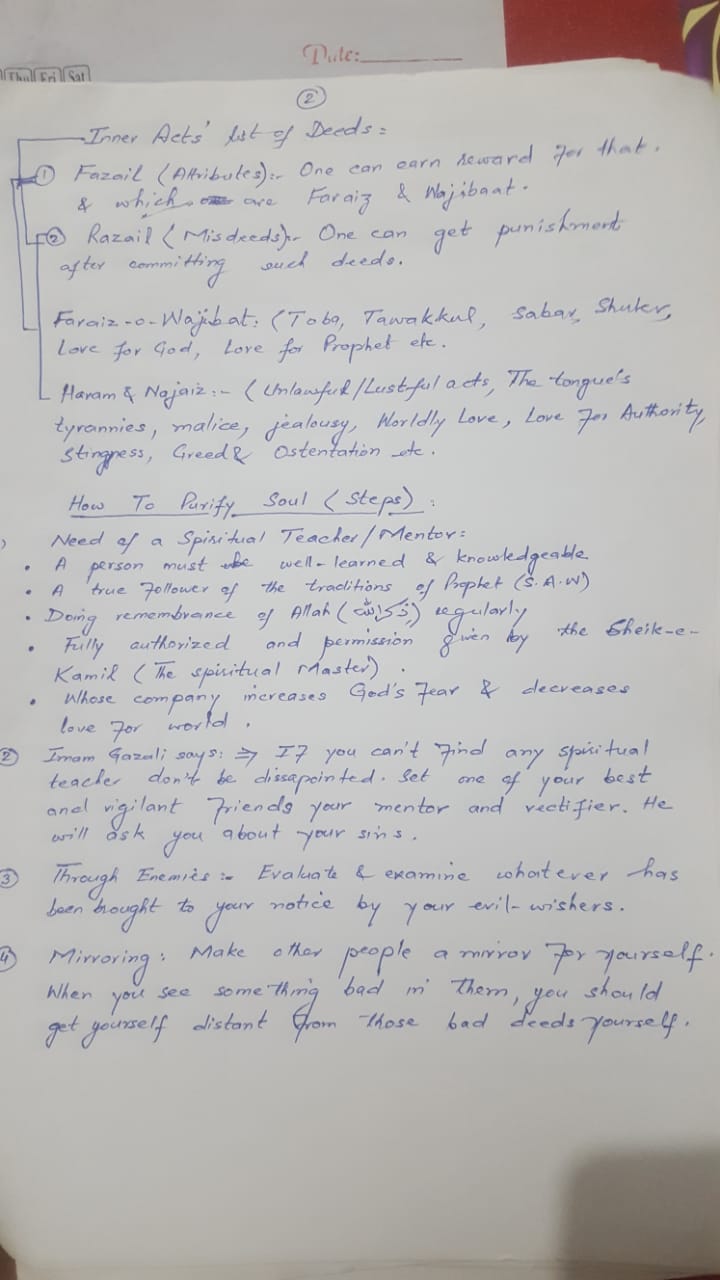 Date:
Thu Fri Sat
2
Inner Acts' list of Deeds:
1 Fazail (Attributes):- One can earn reward for that.
& which are Faraiz & Wajibaat.
2 Razail (Misdeeds):- One can get punishment
after committing such deeds.
Faraiz-o-Wajibat: (Toba, Tawakkul, Sabar, Shuker,
Love for God, Love for Prophet etc.
Haram & Najaiz:- (Unlawful/Lustful acts, The tongue's
tyrannies, malice, jealousy, Worldly Love, Love For Authority,
Stingness, Greed & Ostentation etc.
How To Purify Soul (Steps):
Need of a Spiritual Teacher/Mentor:
• A person must be well-learned & knowledgeable
• A true follower of the traditions of Prophet (S.A.W)
• Doing remembrance of Allah (ذکر اللہ) regularly
• Fully authorized and permission given by the Sheik-e-
Kamil (The spiritual Master).
• Whose company increases God's Fear & decreases
love for world.
2 Imam Gazali says: ⇒ If you can't find any spiritual
teacher don't be dissapointed. Set one of your best
and vigilant friends your mentor and rectifier. He
will ask you about your sins.
3 Through Enemies:- Evaluate & examine whatever has
been brought to your notice by your evil-wishers.
4 Mirroring: Make other people a mirror for yourself.
When you see something bad in them, you should
get yourself distant from those bad deeds yourself.